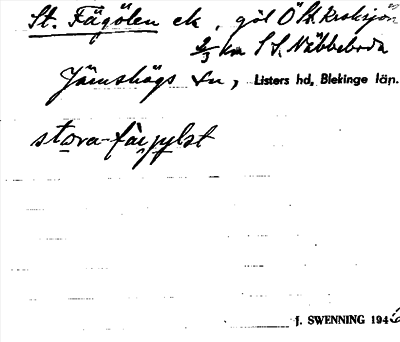 St. Fägölen ek, göl Ö St. Kroksjön
2/3 km S S. Näbbeboda
Jämshögs sn, Listers hd, Blekinge län.
stora-
J. SWENNING 194